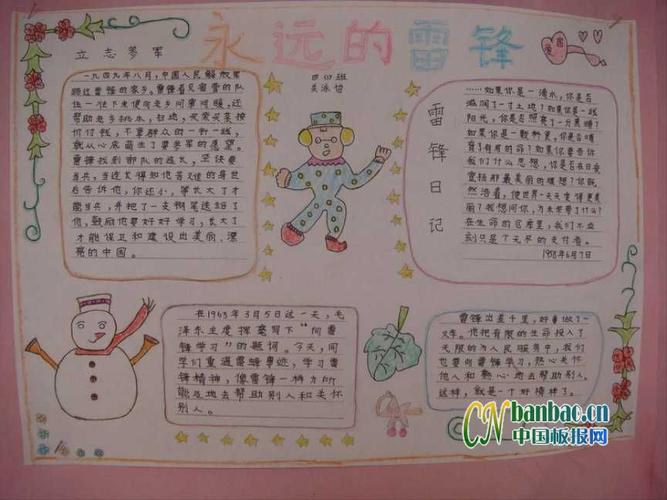 永远的雷锋
立志参军
一九四九年八月，中国人民解放军
路过雷锋的家乡。雷锋看见宿营的队
伍一住下来便向老乡问寒问暖，还
帮助老乡挑水，扫地，买卖买菜按
价付钱，不拿群众的一针一线，
就从心底萌生了要参军的愿望。
雷锋找到部队的连长，坚决要
当兵，当连长得知他苦的身世
后告诉他，你还小，等长大了才
能当兵，并把了一支钢笔送给了
他，鼓励他要好好学习，长大了
才能保卫和建设出美丽、漂
亮的中国。
班
雷锋日记
……如果你是一滴水，你是否
滋润了一寸土地？如果你是一线
阳光，你是否照亮了一分黑暗？
如果你是一颗粮食，你是否哺
育了有用的生命？如果你要告诉
我们什么思想，你是否在日夜
宣扬那最美丽的理想？你既
然活着，使世界一天天变得更美
丽？我想问你，为未来带了什么？
在生命的仓库里，我们不应
到只是个无穷的支付者。
1958年6月7日
在1963年3月5日这一天，毛
泽东主席挥毫写下“向雷
锋学习”的题词。今天，同
学们重温雷锋事迹，学习雷
锋精神，像雷锋一样力所
能及地去帮助别人和关怀
别人。
雷锋出差千里，好事做了一
火车。他把有限的生命投入了
无限的为人民服务中，我们
也要向雷锋学习，热心关怀
他人和热心地去帮助别人。
这样，就是一个好榜样了。
CNbanbao.cn
中国板报网